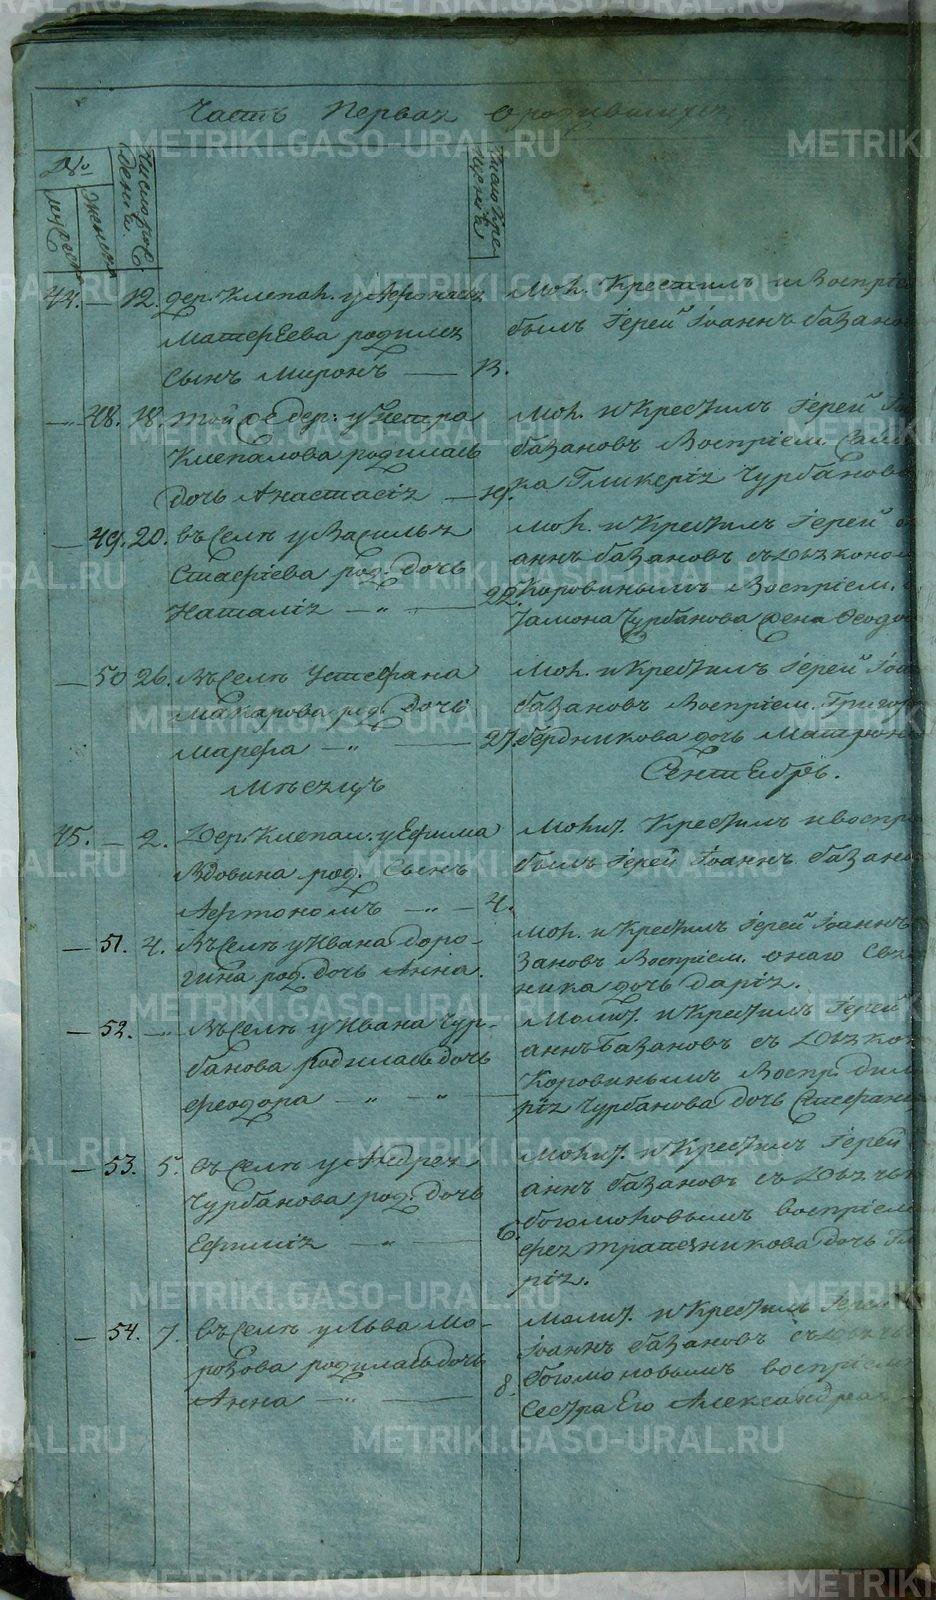 Часть Первая о родившихся
№
мужеска
женска
Число рож
дения.
Число кре
щения
44. — 12. дер. Клепал. у Афонасья
Матфеева родился
сынъ Миронъ — 13.
Мол. Крестилъ и Воспрiе
былъ Iерей Iоаннъ базано
— 48. 18. той же дер: у Петра
Клепалова родилась
дочь Анастасiя — 19.
Мол. и Крестилъ Iерей
базановъ Воспрiем.
ка Гликерiя Чурбанова
— 49. 20. въ Селѣ у Василья
Стафеева род. дочь
Наталiя — „ — 22.
Мол. и Крестилъ Iерей
аннъ базановъ съ Дьякono
Коровинымъ Воспрiем.
Чурбанова жена Феодо
— 50 26. Въ Селѣ У Стефана
Макарова род. дочь
Марфа — „ — 27.
Мол. и Крестилъ Iерей Iоа
базановъ Воспрiем. Григор
бердникова дочь Матрона
Мѣсяцъ
Сентябрь.
45. — 2. Дер. Клепал. у Ефима
Вдовина род. Сынъ
Афтономъ — „ — 4.
Молит. Крестилъ и воспрi
былъ Iерей Iоаннъ базано
— 51. 4. Въ Селѣ у Ивана доро-
гина род. дочь Анна.
Мол. и Крестилъ Iерей Iоаннъ
зановъ Воспрiем. онаго Свя
ника дочь Дарiя.
— 52. — „ — Въ Селѣ у Ивана Чур-
банова родилась дочь
Феодора — „ — „ —
Молит. и Крестилъ Iерей
аннъ Базановъ съ Дьяко
Коровинымъ Воспр.
рiя Чурбанова дочь Стефани
— 53. 5. въ Селѣ у Андрея
Чурбанова род. дочь
Ефимiя — „ — 6.
Молит. и Крестилъ Iерей
аннъ базановъ съ Дьячк
богомоловымъ воспрiем
фея трапезникова дочь Гл
рiя.
— 54. 7. въ Селѣ у Льва Мо-
розова родилась дочь
Анна — „ — 8.
Молит. и Крестилъ Iерей
Iоаннъ базановъ съ Дьяч
богомоловымъ воспрiем
Сестра Его Александра
METRIKI.GASO-URAL.RU